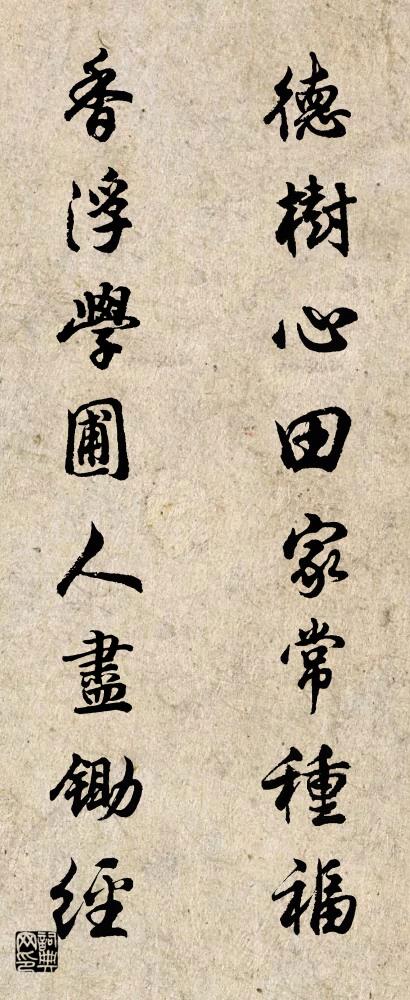 德樹心田家常種福
香浮學圃人盡鋤經
詞典網印